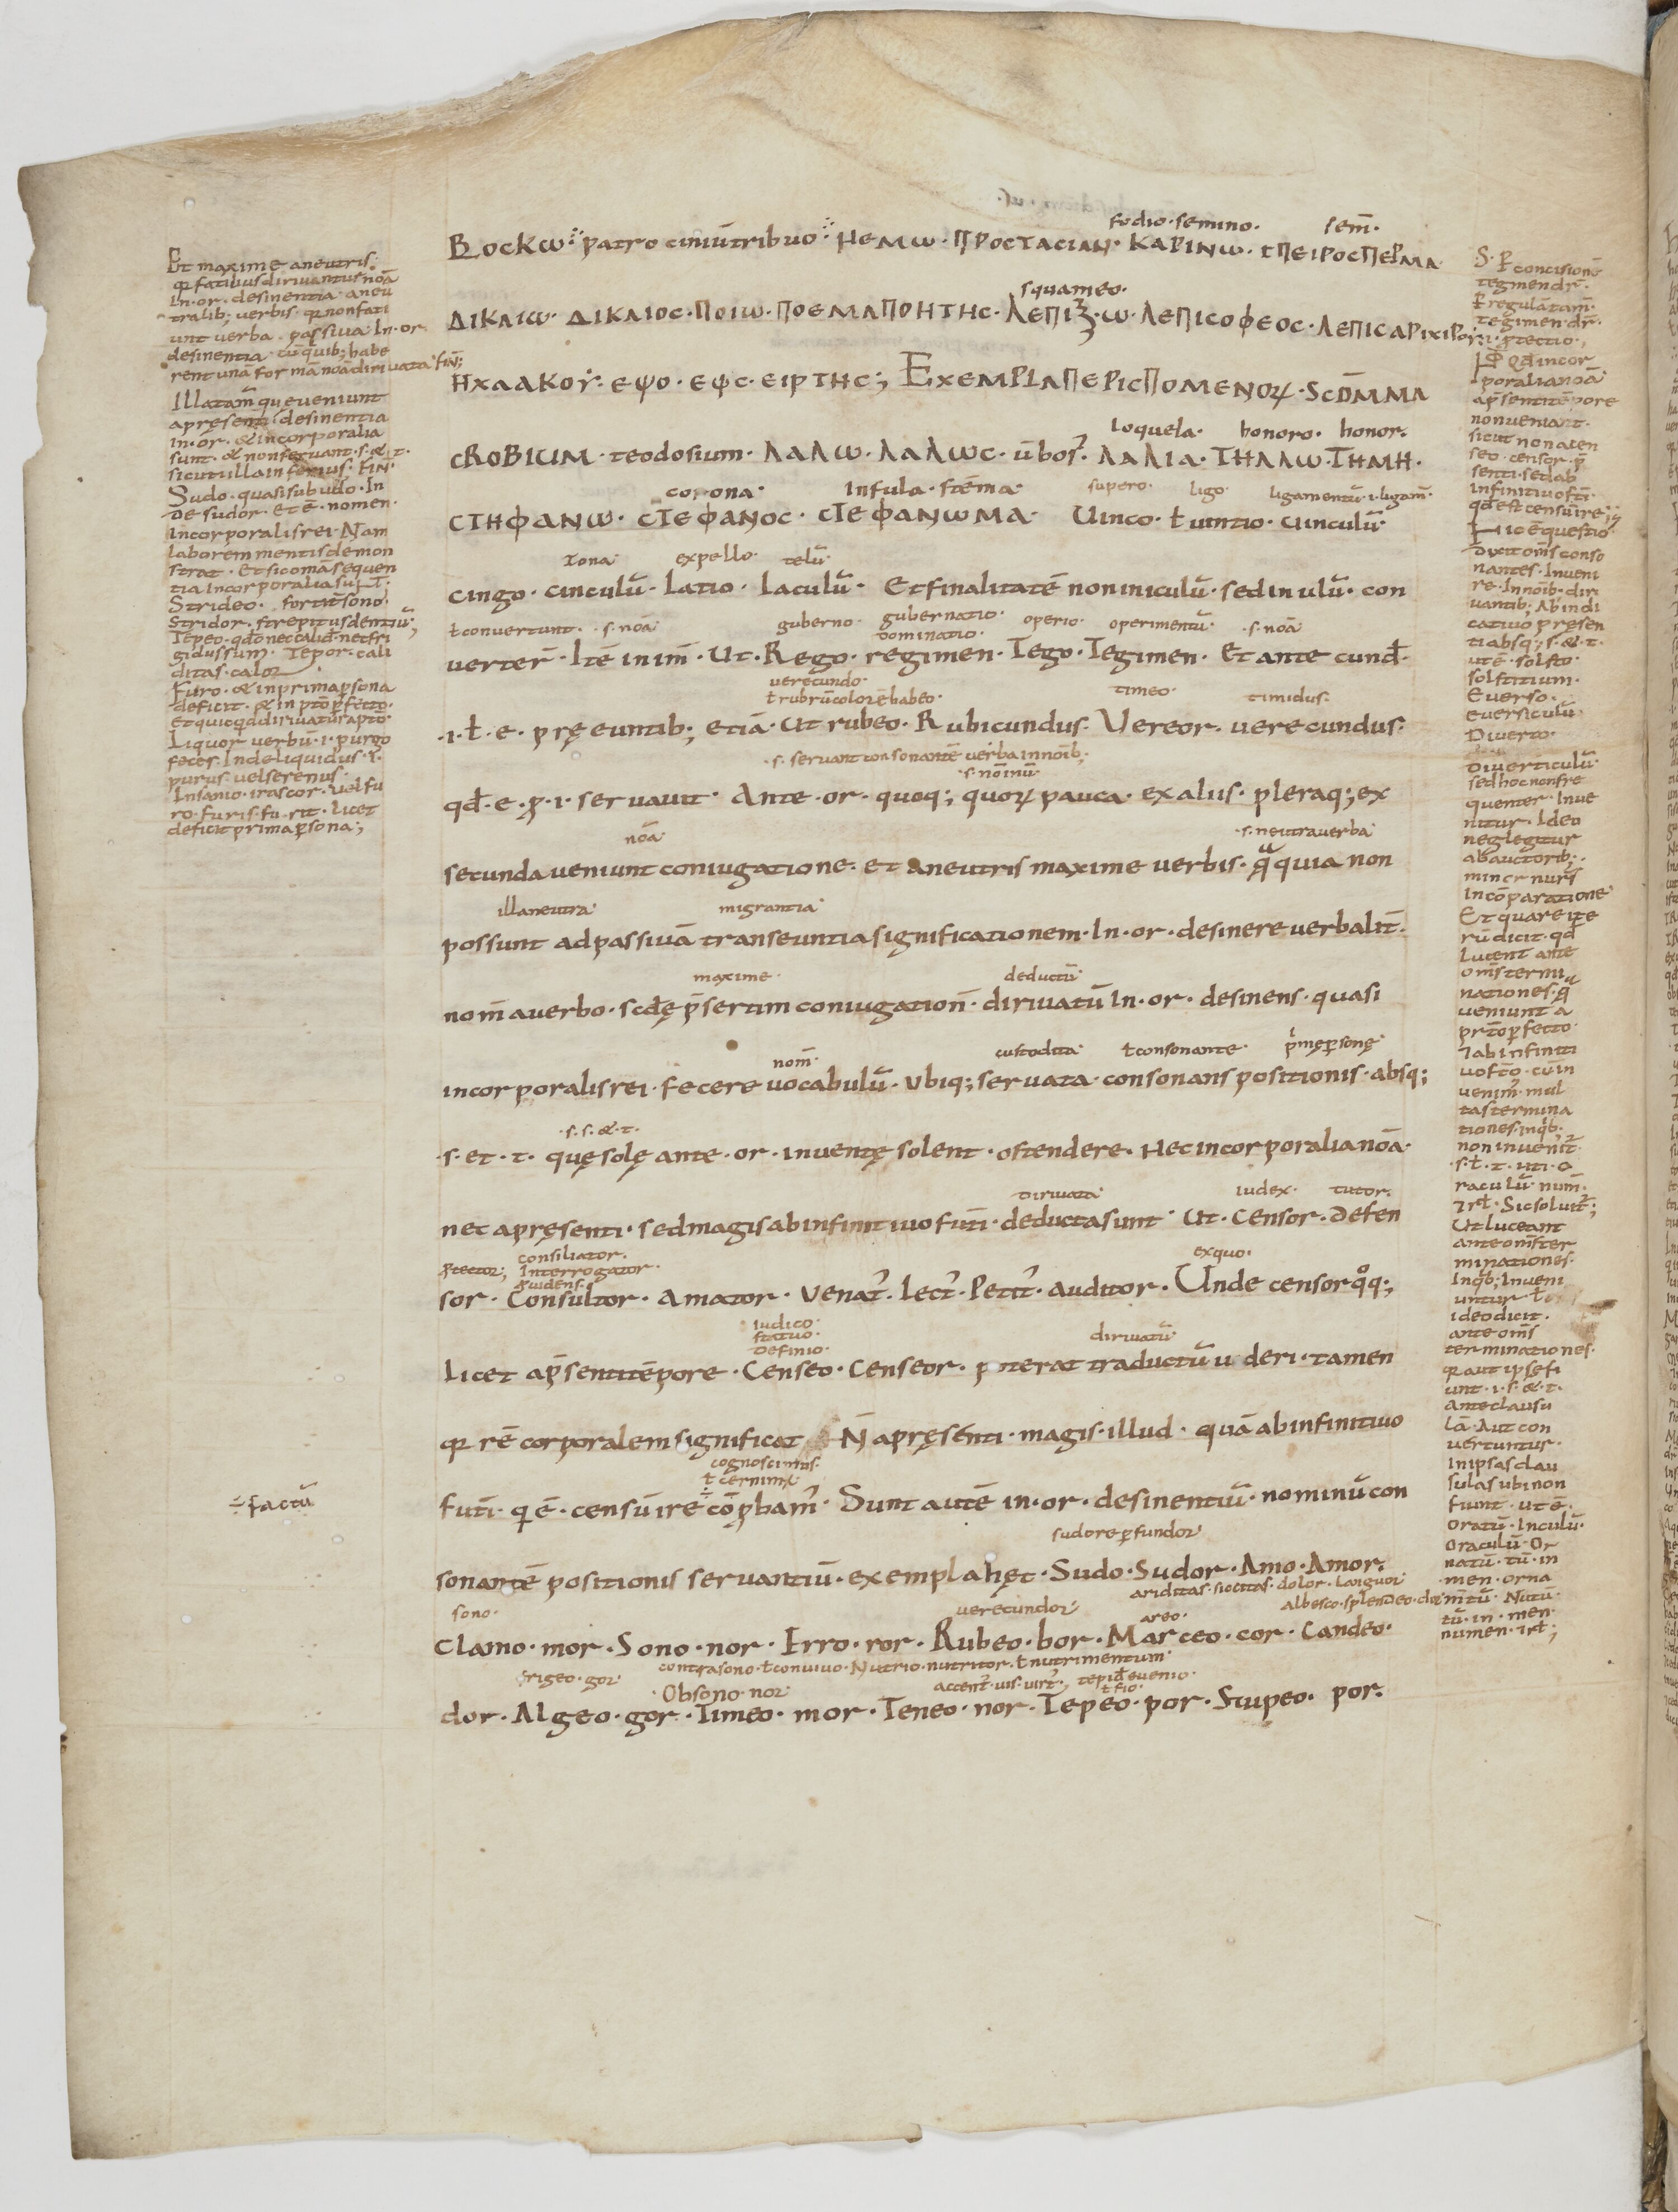 Et maxime aneutris;
qꝛ facilius diriuantur noā
in·or·desinentia·aneu
tralib; verbis·qꝛ non fati
unt verba·passiua in·or·
desinentia·tū quib; habe
rent unā formā noā diriuata· fiń;
Illa tam̄ que veniunt
apręsenti desinentia
in·or·& incorporalia
sunt·& non seruant·s·&·t·
sicut illa inferius·fiń·
Sudo·quasi sub udo·In
de sudor·Et ē·nomen·
incorporalis rei·Nam
laborem mentis demon
strat·Et sic omā sequen
tia incorporalia su͞t·
Strideo·fortit̄ sono·
Stridor·strepitus dentiū;
Tepeo·qđo nec calid·nec fri
gidus sum·Tepor·cali
ditas·calor
Furo·& in prima ꝑsona
deficit·& in ptō ꝑfecto·
Et quicqd diriuatur aptō·
Liquor verbū·i·purgo
feces·Inde liquidus·s·
purus·vel serenus·
Insanio·irascor·vel fu
ro·furis·fu·rit·licet
deficit prima ꝑsona;
÷ factū
fodio·semino· sem̄·
Boskω· patrocinium tribuo· ΗΕΜω·ΠΡΟCΤΑCΙΑΝ·ΚΑΡΙΝω·CΠΕΙΡΟCΠΕΡΜΑ
squameo·
ΔΙΚΑΙω·ΔΙΚΑΙΟC·ΠΟΙω·ΠΟΕΜΑΠΟΗΤΗC·ΛΕΠΙΖ·ω·ΛΕΠΙCΟΦΕΟC·ΛΕΠΙCΑΡΙΧΙΡΟΥ
ΗΧΑΛΚΟΥ·ΕΨΟ·ΕΦC·ΕΙΡΤΗC; EXEMPLA ΠΕΡΙCΠΟΜΕΝΟꝜ·SCD̄MMA
loquela· honoro· honor·
CROBICIM·teodosium·ΛΑΛω·ΛΑΛωC·ūbos·ΛΑΛΙΑ·ΤΗΛΛω·ΤΗΜΗ·
corona· Infula·stēma· supero· ligo· ligamentū·i·ligam̄·
CΤΗΦΑΝω·CΤΕΦΑΝΟC·CΤΕΦΑΝωΜΑ· Uinco·ł uintio·Uinculū·
zona· expello· telū·
cingo·cinculū·Iatio·Iaculū· Et finalitatē non in iculū·sed in ulū·con
ł convertunt·s·noā· guberno· gubernatio·dominatio· operio· operimentū· ·s·noā
verter̄·Itē in im̄·Ut·Rego·regimen·Tego·Tegimen· Et ante cunđ·
verecundo·
ł rubrū colorē habeo· timeo· timidus·
·i·ł·e·pręeuntib; etiā·Ut rubeo·Rubicundus·Vereor·verecundus·
·s·servant consonantē verba in noīb;
·s·noīnū·
qđ·e·ꝓ·i·servauit· Ante·or·quoq; quoꝝ pauca·ex aliis·pleraq; ex
noā· ·s·neutra verba
secunda ueniunt coniugatione·et aneutris maxime verbis·quia non
illa neutra· migrantia·
possunt ad passiuā transeuntia significationem·In·or·desinere verbalit̄·
maxime· deductū·
nom̄ auerbo·scđę p̄sertim coniugation̄·diriuatū In·or·desinens·quasi
nom̄· custodita· ł consonante· p̄mę ꝑsonę·
incorporalis rei·fecere vocabulū·Ubiq; servata·consonans positionis·absq;
·s·s·&·t·
·s·et·t·quę solę ante·or·inventę solent·ostendere·Hec incorporalia noā·
diriuata· iudex· tutor·
nec apręsenti·sed magis ab infinitiuo futi·deducta sunt· Ut·Censor·Defen
ꝓtector; consiliator·
Interrogator·
ꝓuidens· exquo·
sor·Consultor·Amator·Venat̄·Lect̄·Petit̄·auditor·Unde censor qͦq;
Iudico·
statuo·
Definio· diriuatū·
Licet ap̄senti tēpore·Censeo·Censeor·poterat traductū uideri·tamen
qꝛ rē corporalem significat N̄ apręsenti·magis·illud·quā ab infinitiuo
cognoscimus·
ł cernimꝰ
futi·qꝛ ē·censū ire cōꝓbam̄· Sunt autē in·or·desinentiū·nominū con
sudore ꝑfundor
sonantē positionis servantiū·exempla hęc·Sudo·Sudor·Amo·Amor·
sono· verecundor areo· ariditas·siccitas·dolor·languor
Albesco·splendeo·
Clamo·mor·Sono·nor·Erro·ror·Rubeo·bor·Marceo·cor·Candeo·
frigeo·gor contra sono·ł convivo·Nutrio·nutritor·ł nutrimentum·
Obsono·nor accent̄·uis·uirt̄· tepid evenio·
ł fio·
dor·Algeo·gor·Timeo·mor·Teneo·nor·Tepeo·por·Stupeo·por·
S·P̄ concisionē
tegmen dr̄·
P̄ regulā tam̄·
tegimen·dr̄·
·i·ꝓtectio·
qđ incor
poralia noā
ap̄senti tēpore
non veniant·
sicut non a cen
seo·censor·p̄
senti·sed ab
infinitiuo fti·
qđ est censū ire;
Hic ē questio
Dixit om̄s conso
nantes·Inveni
re·In noīb·diri
vantib; Ab indi
cativo pręsen
ti absq; s·&·t·
ut ē·solsto·
solstitium·
Everso·
eversiculū·
Diverto·
Diverticulū·
sed hoc non fre
quenter·Inve
nitur·Ideo
neglegitur
ab auctorib;
In cōparatione
Et quare ite
rū dicit·qđ
lucent ante
om̄s termi
nationes·
veniunt a
prtō ꝑfecto
⁊ ab infiniti
vo fto·cū in
venim̄·mul
tas termina
tiones·in qb·
non invenit̄
·s·ł·t·uti·o
raculū·num̄·
⁊rł·Sic soluit̄;
Ut luceant
ante om̄s ter
minationes·
In qb; Inveni
untur
ideo dicit·
ante om̄s
terminationes·
qꝛ aut ipsę fi
unt·i·s·&·t·
Ante clausu
lā·Aut con
vertuntur·
In ipsas clau
sulas ubi non
fiunt·ut ē·
Oratū·In culū·
Oraculū·Or
natū·tū·in
men·orna
m̄tū·Nutū·
tū·in·men·
numen·⁊rł;